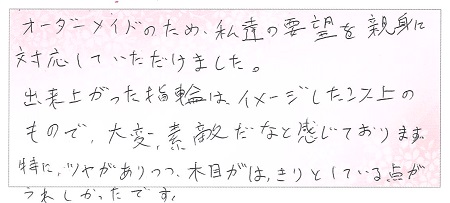 オーダーメイドのため、私達の要望を親身に
対応していただけました。
出来上がった指輪は、イメージした以上の
もので、大変、素敵だなと感じております。
特に、ツヤがありつつ、木目がは,きりとしている点が
うれしかったです。